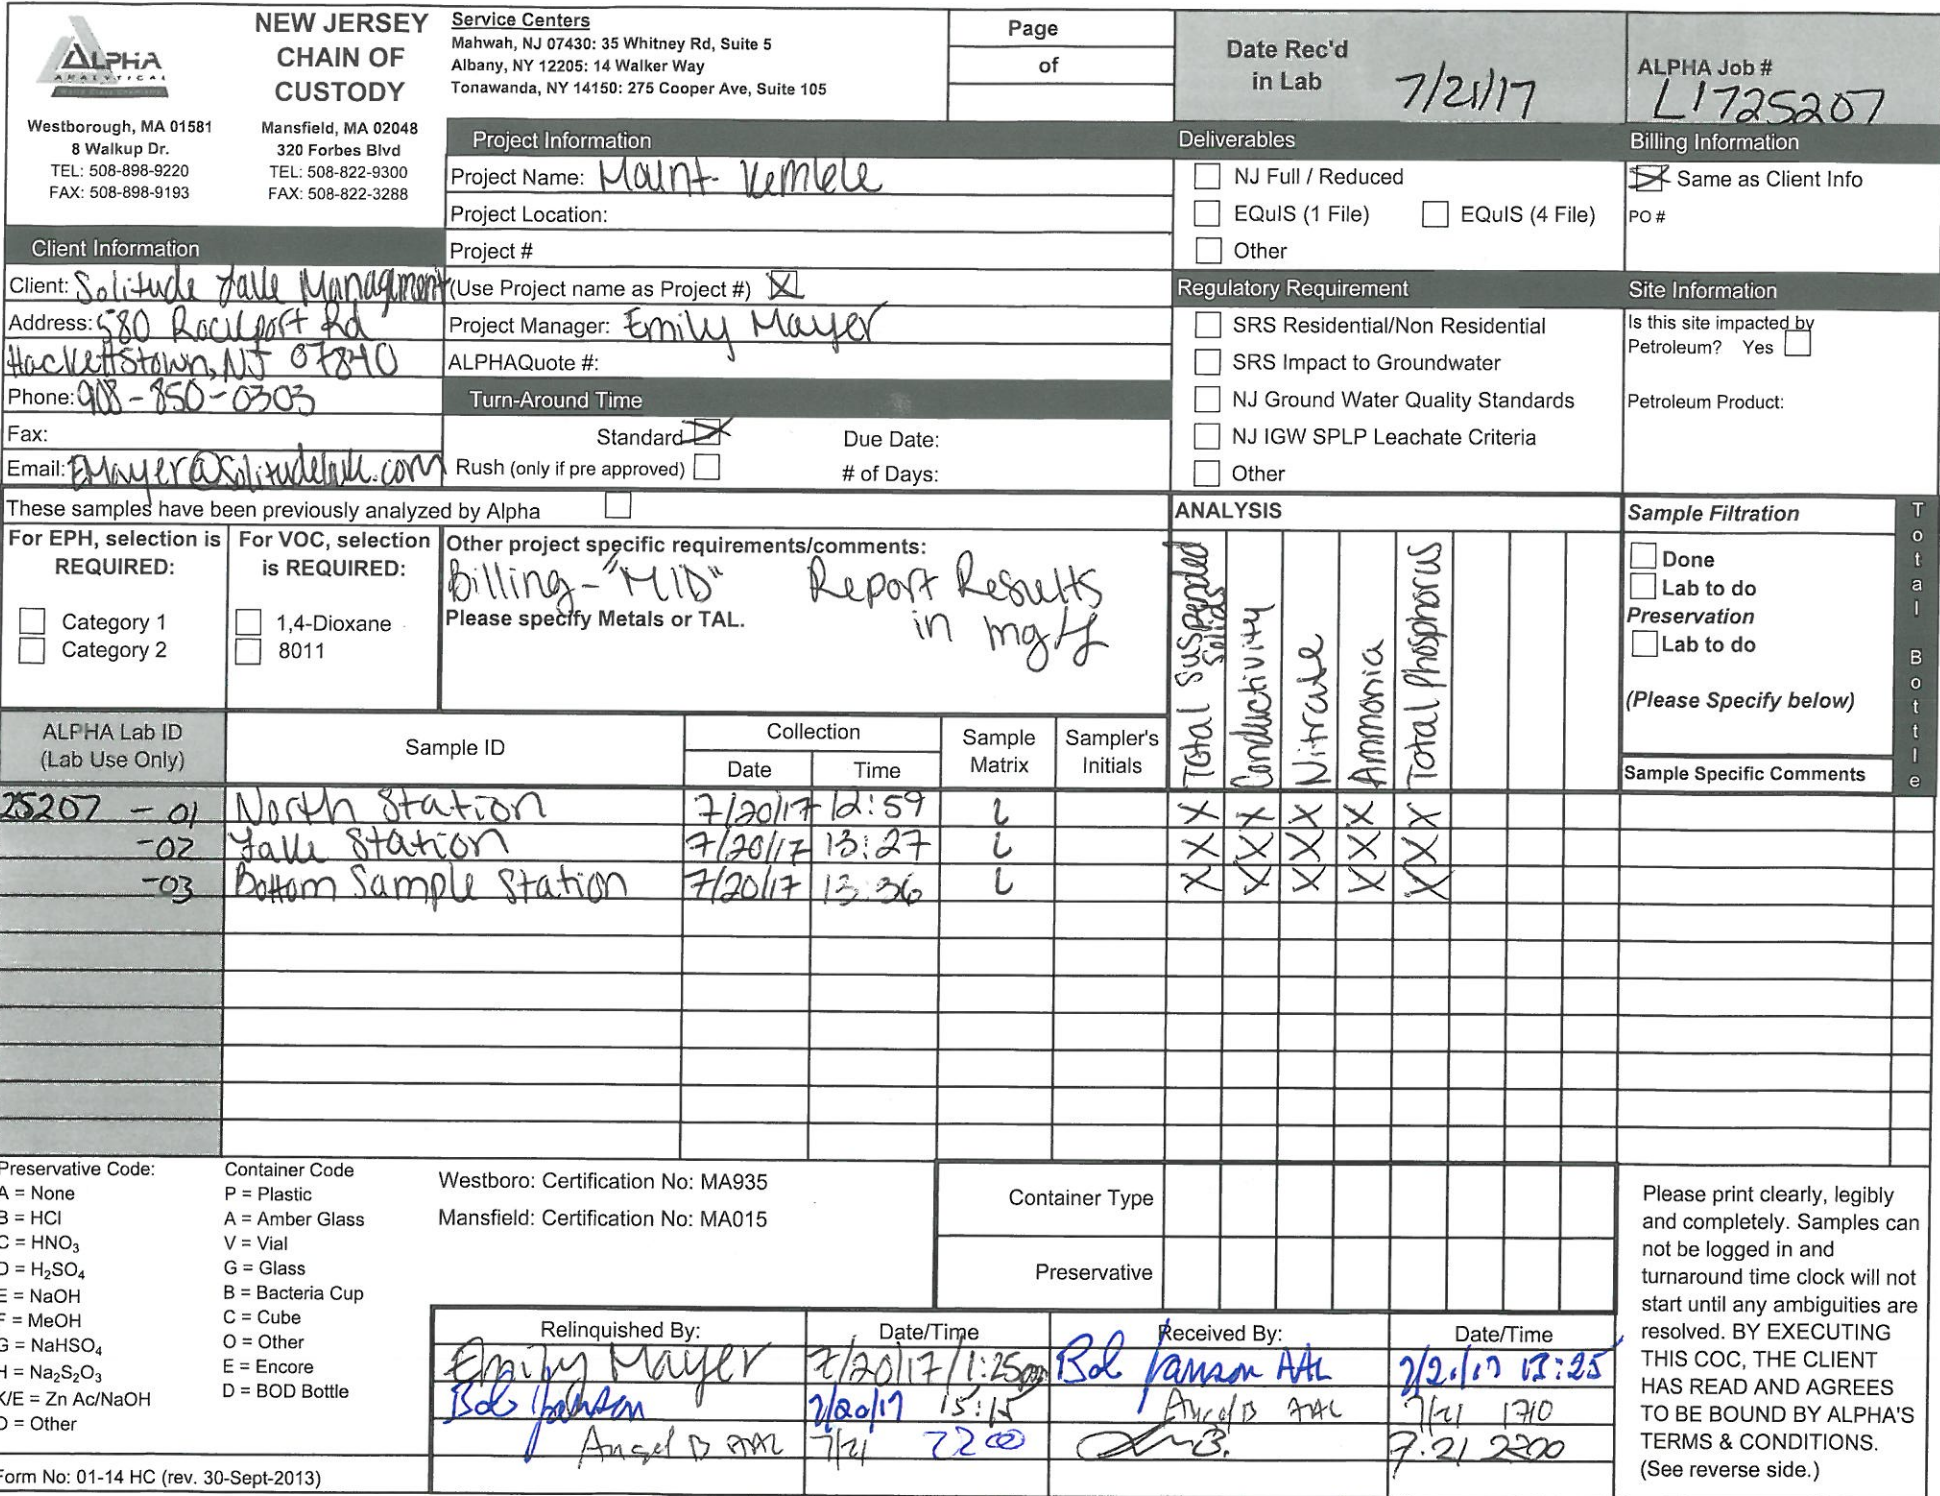 ALPHA
ANALYTICAL
World Class Chemistry
NEW JERSEY
CHAIN OF
CUSTODY
Westborough, MA 01581
8 Walkup Dr.
TEL: 508-898-9220
FAX: 508-898-9193
Mansfield, MA 02048
320 Forbes Blvd
TEL: 508-822-9300
FAX: 508-822-3288
Service Centers
Mahwah, NJ 07430: 35 Whitney Rd, Suite 5
Albany, NY 12205: 14 Walker Way
Tonawanda, NY 14150: 275 Cooper Ave, Suite 105
Page
of
Date Rec'd
in Lab 7/21/17
ALPHA Job #
L1725207
Project Information
Project Name: Mount Kemble
Project Location:
Project #
(Use Project name as Project #) X
Project Manager: Emily Mayer
ALPHAQuote #:
Turn-Around Time
Standard X Due Date:
Rush (only if pre approved) # of Days:
Client Information
Client: Solitude Lake Managment
Address: 580 Rockport Rd
Hackettstown, NJ 07840
Phone: 908-850-0303
Fax:
Email: EMayer@solitudelake.com
Deliverables
NJ Full / Reduced
EQuIS (1 File) EQuIS (4 File)
Other
Regulatory Requirement
SRS Residential/Non Residential
SRS Impact to Groundwater
NJ Ground Water Quality Standards
NJ IGW SPLP Leachate Criteria
Other
Billing Information
X Same as Client Info
PO #
Site Information
Is this site impacted by
Petroleum? Yes
Petroleum Product:
These samples have been previously analyzed by Alpha
For EPH, selection is
REQUIRED:
Category 1
Category 2
For VOC, selection
is REQUIRED:
1,4-Dioxane
8011
Other project specific requirements/comments:
Billing - "MID" Report Results
in mg/L
Please specify Metals or TAL.
ANALYSIS
Total Suspended Solids
Conductivity
Nitrate
Ammonia
Total Phosphorus
Sample Filtration
Done
Lab to do
Preservation
Lab to do
(Please Specify below)
Total Bottle
ALPHA Lab ID
(Lab Use Only)
Sample ID
Collection
Date Time
Sample
Matrix
Sampler's
Initials
Sample Specific Comments
25207 - 01 North Station 7/20/17 12:59 L X X X X X
-02 Lake Station 7/20/17 13:27 L X X X X X
-03 Bottom Sample Station 7/20/17 13:36 L X X X X X
Preservative Code:
A = None
B = HCl
C = HNO3
D = H2SO4
E = NaOH
F = MeOH
G = NaHSO4
H = Na2S2O3
K/E = Zn Ac/NaOH
O = Other
Container Code
P = Plastic
A = Amber Glass
V = Vial
G = Glass
B = Bacteria Cup
C = Cube
O = Other
E = Encore
D = BOD Bottle
Westboro: Certification No: MA935
Mansfield: Certification No: MA015
Container Type
Preservative
Relinquished By: Date/Time Received By: Date/Time
Emily Mayer 7/20/17/1:25pm Bob AAL 13:25
Bob 7/20/17 15:15 Angel B AAL 7/21 1710
Angel B AAL 7/21 2200 7.21 2200
Please print clearly, legibly
and completely. Samples can
not be logged in and
turnaround time clock will not
start until any ambiguities are
resolved. BY EXECUTING
THIS COC, THE CLIENT
HAS READ AND AGREES
TO BE BOUND BY ALPHA'S
TERMS & CONDITIONS.
(See reverse side.)
Form No: 01-14 HC (rev. 30-Sept-2013)